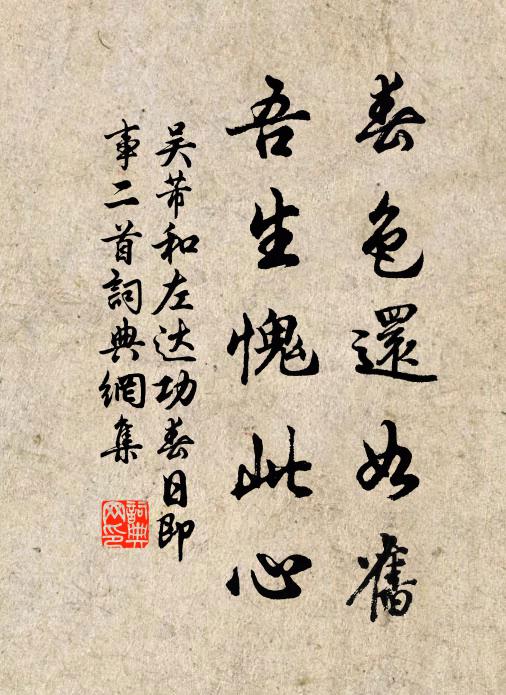 春色還如舊
吾生愧此心
吴芾和左达功春日即
事二首詞典網集
詞典
网印